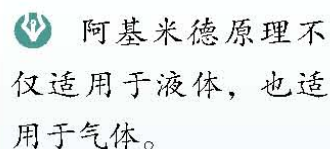 阿基米德原理不
仅适用于液体，也适
用于气体。